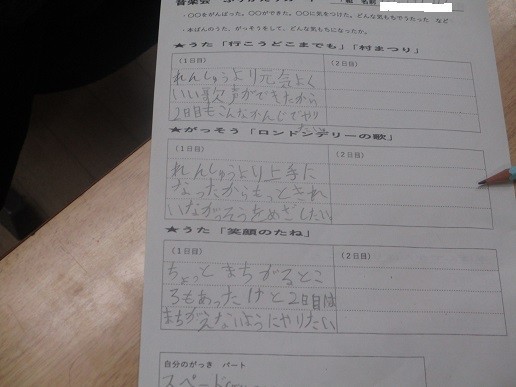 音楽会
・〇〇をがんばった。〇〇ができた。〇〇に気をつけた。どんな気もちでうたった など
・本ばんのうた、がっそうをして、どんな気もちになったか。
★うた「行こうどこまでも」「村まつり」
(1日目) (2日目)
れんしゅうより元気よく
いい歌声ができたから
2日目もこんなかんじでやり
★がっそう「ロンドンデリーの歌」
(1日目) (2日目)
れんしゅうより上手に
なったからもっときれ
いながっそうをめざしたい
★うた「笑顔のたね」
(1日目) (2日目)
ちょっとまちがるとこ
ろもあったけと2日目は
まちがえないようにやりたい
自分のがっき パート
スペード